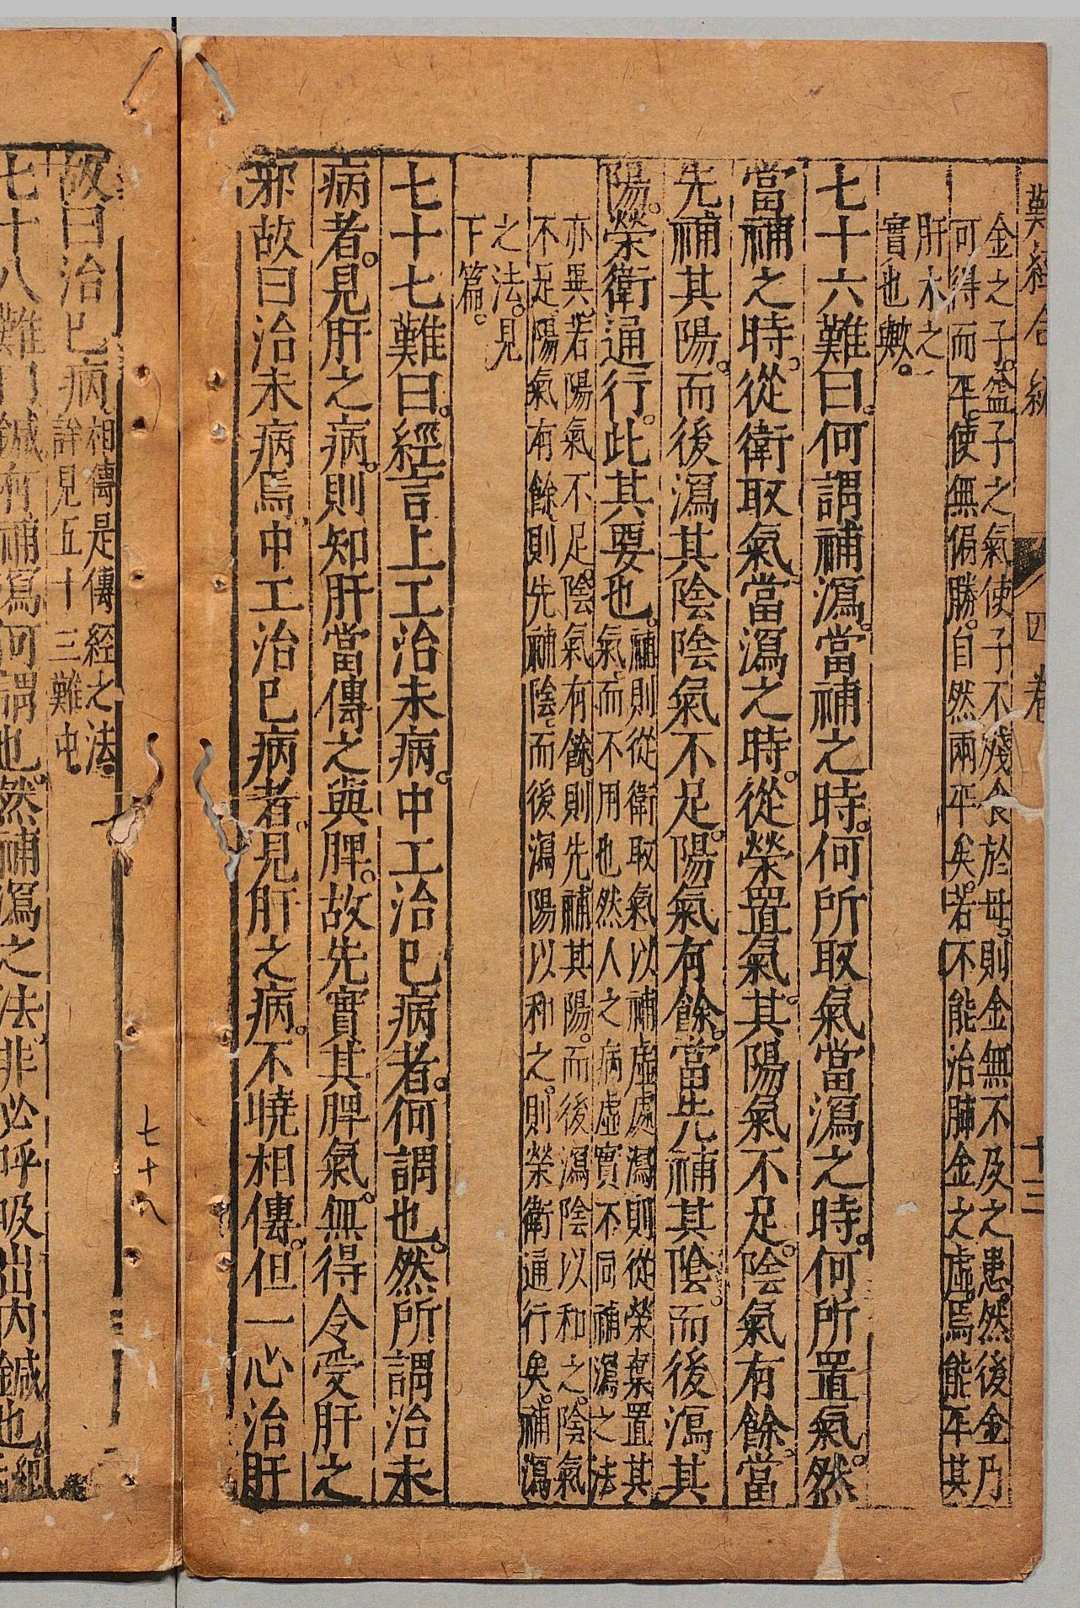 難經合纂
四卷
十三
金之子盆子之氣使子不殘食於母則金無不及之患然後金乃
可得而平使無偏勝自然兩平矣若不能治肺金之虛焉能平其
肝木之
實也歟
七十六難曰何謂補瀉當補之時何所取氣當瀉之時何所置氣然
當補之時從衛取氣當瀉之時從榮置氣其陽氣不足陰氣有餘當
先補其陽而後瀉其陰陰氣不足陽氣有餘當先補其陰而後瀉其
陽榮衛通行此其要也補則從衛取氣以補虛處瀉則從榮棄置其
氣而不用也然人之病虛實不同補瀉之法
亦異若陽氣不足陰氣有餘則先補其陽而後瀉陰以和之陰氣
不足陽氣有餘則先補陰而後瀉陽以和之則榮衛通行矣補瀉
之法見
下篇
七十七難曰經言上工治未病中工治已病者何謂也然所謂治未
病者見肝之病則知肝當傳之與脾故先實其脾氣無得令受肝之
邪故曰治未病焉中工治已病者見肝之病不曉相傳但一心治肝
故曰治已病相傳是傳經之法
詳見五十三難中
七十八難曰鍼有補瀉何謂也然補瀉之法非必呼吸出內鍼也
七十八